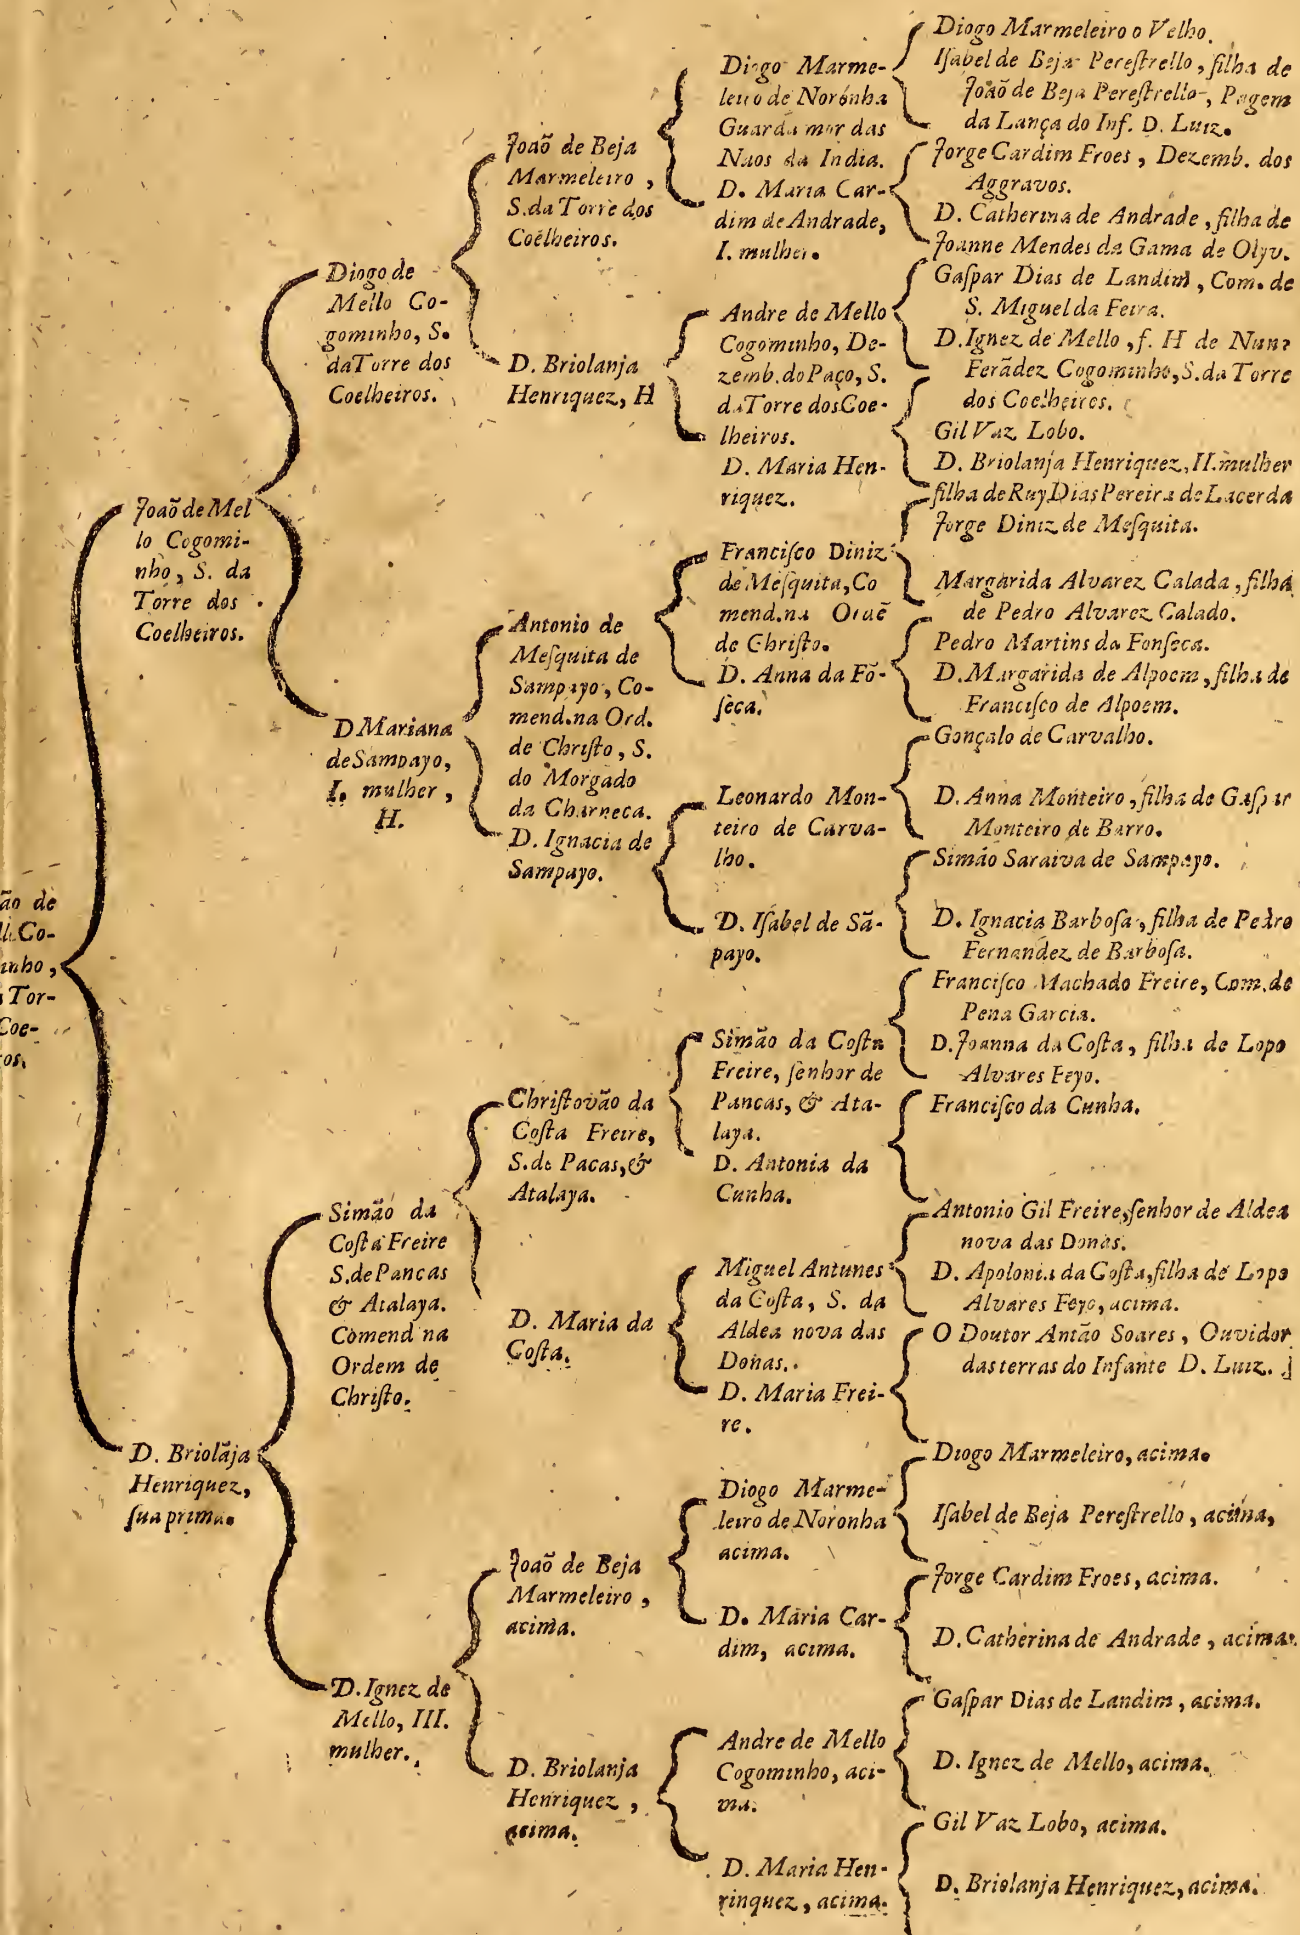 ão de
Co-
inho,
Tor-
Coe-
os.
Joaõ de Mel
lo Cogomi-
nho, S. da
Torre dos
Coelheiros.
D. Briolãja
Henriquez,
ſua prima.
Diogo de
Mello Co-
gominho, S.
da Torre dos
Coelheiros.
D Mariana
de Sampayo,
I. mulher,
H.
Simão da
Coſta Freire
S. de Pancas
& Atalaya.
Comend na
Ordem de
Chriſto.
D. Ignez de
Mello, III.
mulher.
Joaõ de Beja
Marmeleiro,
S. da Torre dos
Coelheiros.
D. Briolanja
Henriquez, H
Antonio de
Meſquita de
Sampayo, Co-
mend. na Ord.
de Chriſto, S.
do Morgado
da Charneca.
D. Ignacia de
Sampayo.
Chriſtovão da
Coſta Freire,
S. de Pacas, &
Atalaya.
D. Maria da
Coſta.
Joaõ de Beja
Marmeleiro,
acima.
D. Briolanja
Henriquez,
acima.
Diogo Marme-
leiro de Noronha
Guarda mor das
Naos da India.
D. Maria Car-
dim de Andrade,
I. mulher.
Andre de Mello
Cogominho, De-
zemb. do Paço, S.
da Torre dos Coe-
lheiros.
D. Maria Hen-
riquez.
Franciſco Diniz
de Meſquita, Co
mend. na Ordẽ
de Chriſto.
D. Anna da Fõ-
ſeca.
Leonardo Mon-
teiro de Carva-
lho.
D. Iſabel de Sã-
payo.
Simão da Coſta
Freire, ſenhor de
Pancas, & Ata-
laya.
D. Antonia da
Cunha.
Miguel Antunes
da Coſta, S. da
Aldea nova das
Donas.
D. Maria Frei-
re.
Diogo Marme-
leiro de Noronha
acima.
D. Maria Car-
dim, acima.
Andre de Mello
Cogominho, aci-
ma.
D. Maria Hen-
rinquez, acima.
Diogo Marmeleiro o Velho.
Iſabel de Beja Pereſtrello, filha de
Joaõ de Beja Pereſtrello, Pagem
da Lança do Inf. D. Luiz.
Jorge Cardim Froes, Dezemb. dos
Aggravos.
D. Catherina de Andrade, filha de
Joanne Mendes da Gama de Olyv.
Gaſpar Dias de Landim, Com. de
S. Miguel da Feira.
D. Ignez de Mello, f. H de Nun?
Ferãdez Cogominho, S. da Torre
dos Coelheiros.
Gil Vaz Lobo.
D. Briolanja Henriquez, II. mulher
filha de Ruy Dias Pereira de Lacerda
Jorge Diniz de Meſquita.
Margarida Alvarez Calada, filha
de Pedro Alvarez Calado.
Pedro Martins da Fonſeca.
D. Margarida de Alpoem, filha de
Franciſco de Alpoem.
Gonçalo de Carvalho.
D. Anna Monteiro, filha de Gaſpar
Monteiro de Barro.
Simão Saraiva de Sampayo.
D. Ignacia Barboſa, filha de Pedro
Fernandez de Barboſa.
Franciſco Machado Freire, Com. de
Pena Garcia.
D. Joanna da Coſta, filha de Lopo
Alvares Feyo.
Franciſco da Cunha.
Antonio Gil Freire, ſenhor de Aldea
nova das Donas.
D. Apolonia da Coſta, filha de Lopo
Alvares Feyo, acima.
O Doutor Antão Soares, Ouvidor
das terras do Infante D. Luiz.
Diogo Marmeleiro, acima.
Iſabel de Beja Pereſtrello, acima,
Jorge Cardim Froes, acima.
D. Catherina de Andrade, acima.
Gaſpar Dias de Landim, acima.
D. Ignez de Mello, acima.
Gil Vaz Lobo, acima.
D. Briolanja Henriquez, acima.